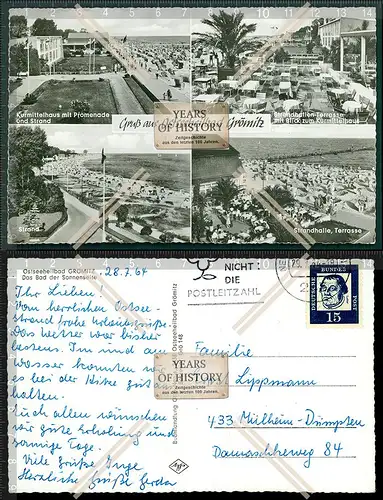 Kurmittelhaus mit Promenade
und Strand
Strandhallen-Terrasse
mit Blick zum Kurmittelhaus
Gruß aus Ostseeheilbad Grömitz
YEARS
OF HISTORY
Zeitgeschichte
aus den letzten 100 Jahren.
Strand
Strandhalle, Terrasse
Ostseeheilbad GRÖMITZ
Das Bad der Sonnenseite
28.7.64
Ihr Lieben!
Vom herrlichen Ostsee-
strand frohe Urlaubsgrüße.
Das Wetter war bisher
bestens. Im und am
Wasser konnten wir
es bei der Hitze gut aus
halten.
Euch allen wünschen
wir gute Erholung und
sonnige Tage.
Viele Grüße Inge
Herzliche Grüße Gerda
Ostseeheilbad Grömitz
NICHT:
DIE
POSTLEITZAHL
DEUTSCHE
BUNDES
POST
15
Familie
Lippmann
YEARS
OF HISTORY
Zeitgeschichte
aus den letzten 100 Jahren.
433 Mülheim-Dümpten
Damaschkeweg 84
Agfa